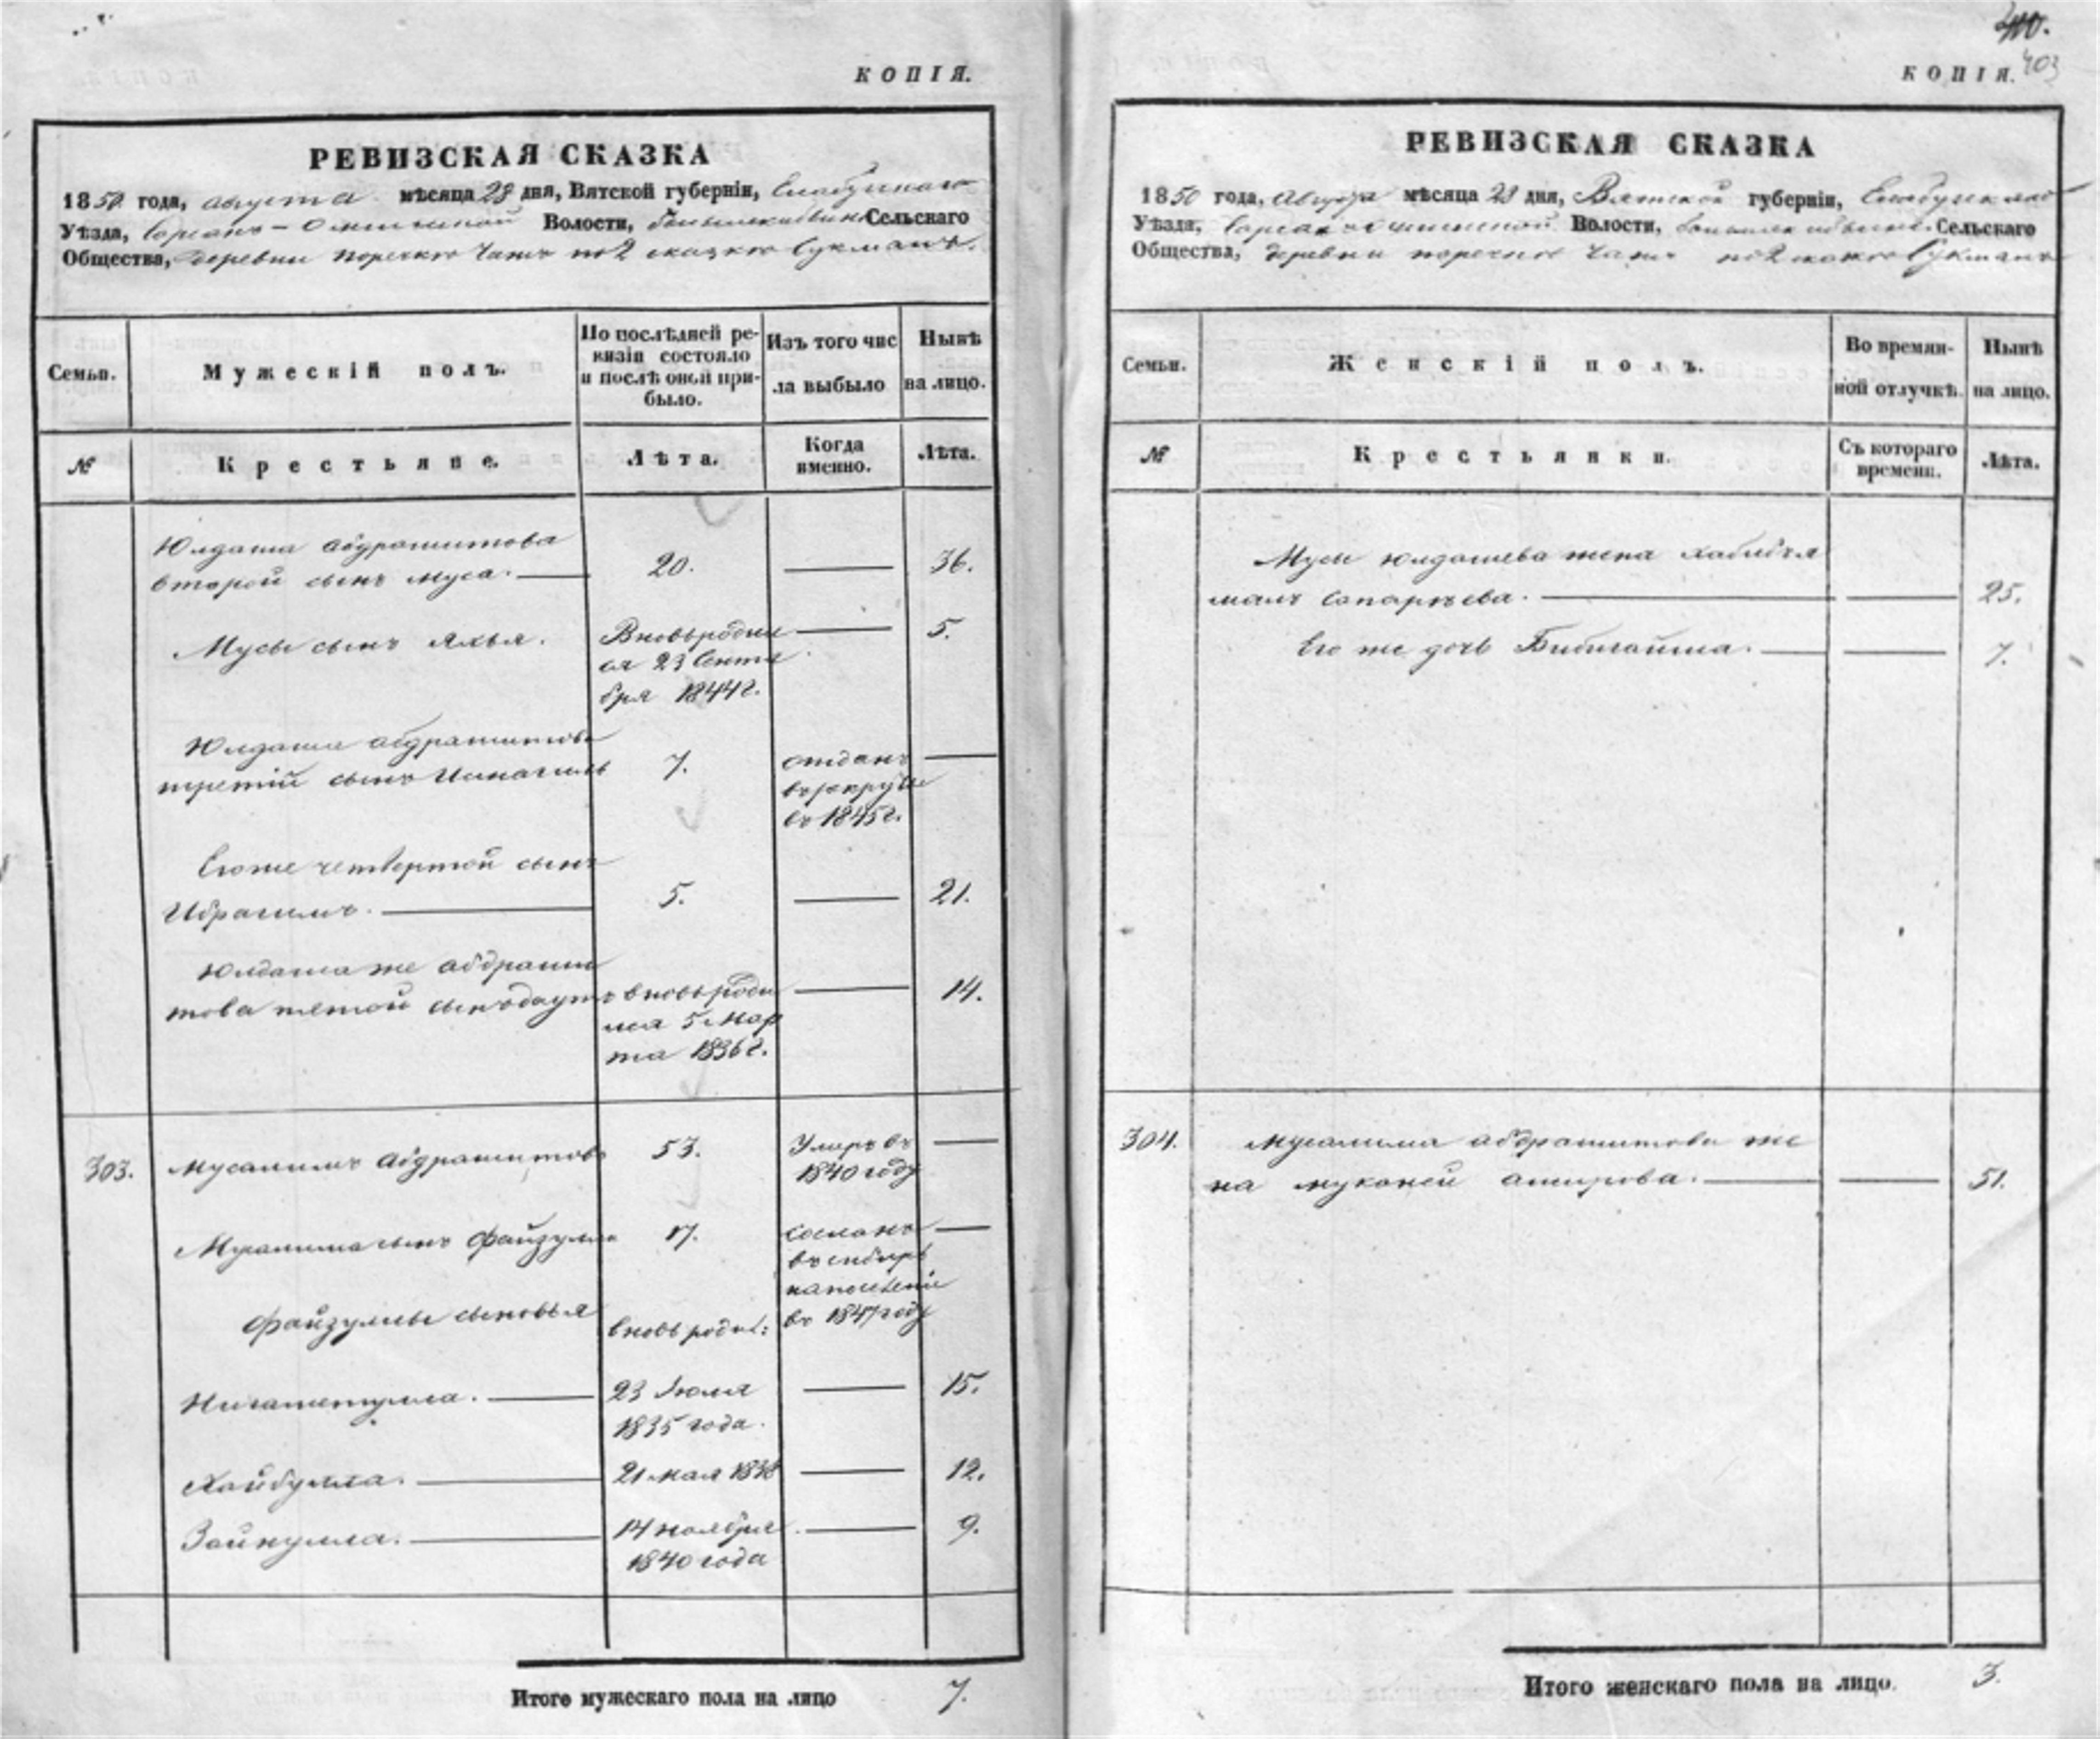 КОПІЯ.
РЕВИЗСКАЯ СКАЗКА
1850 года, августа мѣсяца 28 дня, Вятской губерніи, Елабужскаго
Уѣзда, Волости, Сельскаго
Общества, деревни по 2 сказкѣ
Семьи.
Мужескій полъ.
По послѣдней ре-
визіи состояло
и послѣ оной при-
было.
Изъ того чис
ла выбыло
Нынѣ
на лицо.
№
Крестьяне.
Лѣта.
Когда
именно.
Лѣта.
Юлдаша Абдрашитова
второй сынъ Муса. 20. 36.
Мусы сынъ Яхья. Вновь родил 5.
ся 23 Сентя
бря 1844 г.
Юлдаша Абдрашитова
третій сынъ Исмагилъ 7. отданъ
въ рекруты
въ 1845 г.
Его же четвертой сынъ
Ибрагимъ. 5. 21.
Юлдаша же Абдраши
това пятой сынъ Даутъ вновь роди 14.
лся 5 Мар
та 1836 г.
303. Мусалимъ Абдрашитовъ 53. Умеръ въ
1840 году
Мусалима сынъ Файзулла 17. сосланъ
въ сибирь
на поселеніе
въ 1847 году
Файзуллы сыновья вновь родил:
Нигаметулла. 23 Іюля 15.
1835 года.
Хайбулла. 21 мая 1838 12.
Зайнулла. 14 ноября 9.
1840 года
Итого мужескаго пола на лицо 7.
403
КОПІЯ.
РЕВИЗСКАЯ СКАЗКА
1850 года, Августа мѣсяца 28 дня, Вятской губерніи, Елабужскаго
Уѣзда, Волости, Сельскаго
Общества, деревни по 2 сказкѣ
Семьи.
Женскій полъ.
Во времян-
ной отлучкѣ.
Нынѣ
на лицо.
№
Крестьянки.
Съ котораго
времени.
Лѣта.
Мусы Юлдашева жена Хабибзя
малъ Сапарѣева. 25.
Его же дочь Бибигайша. 7.
304. Мусалима Абдрашитова же
на амирова. 51.
Итого женскаго пола на лицо. 3.